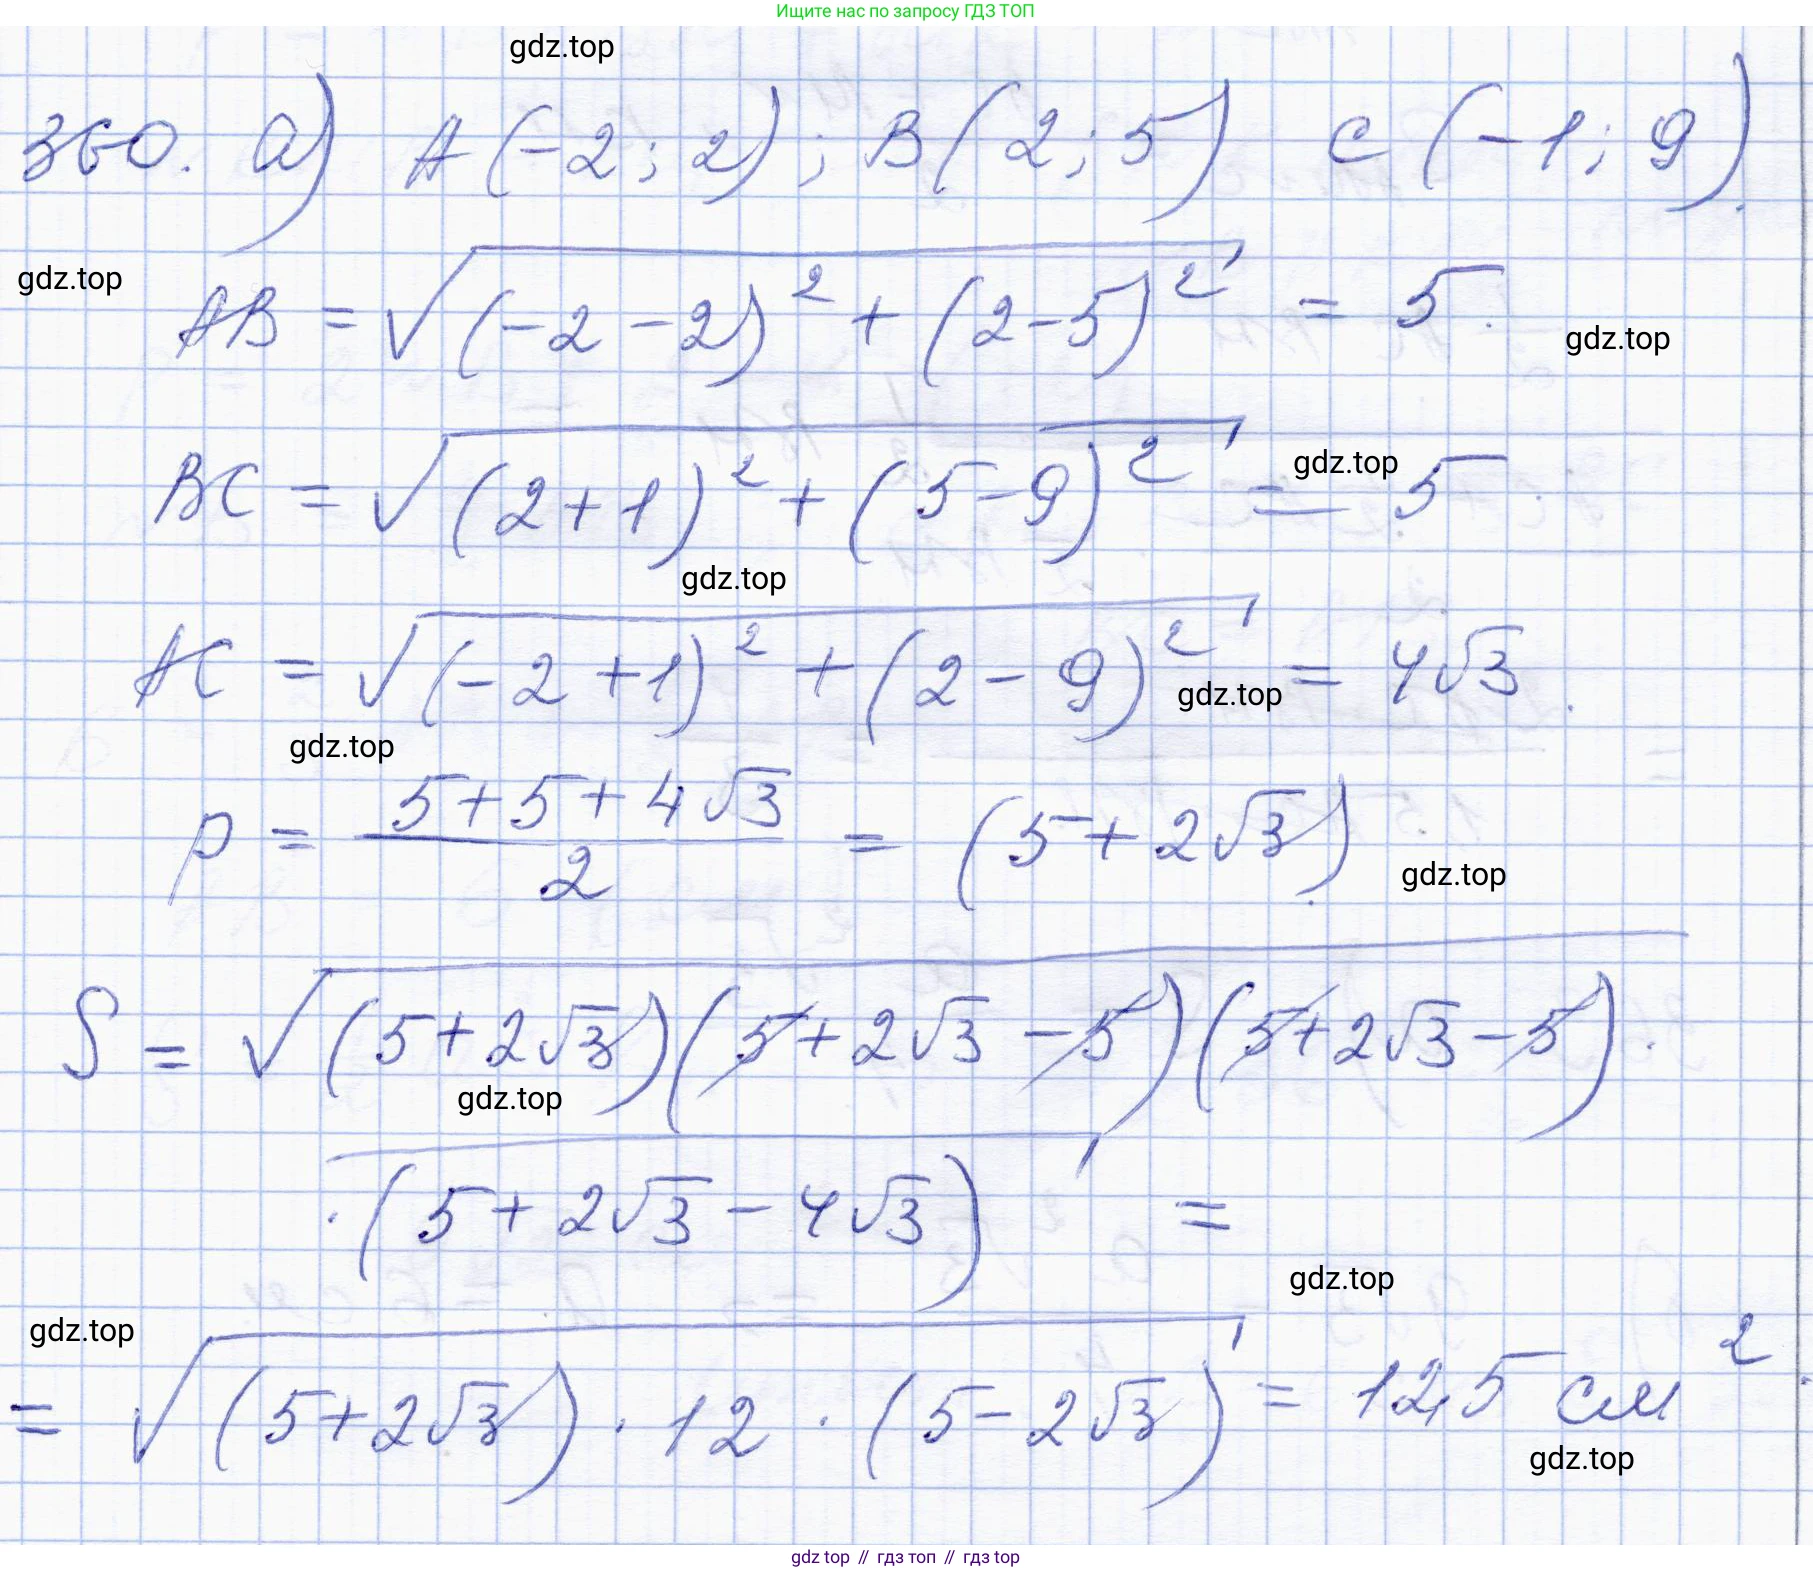 Ищите нас по запросу ГДЗ ТОП
gdz.top
360. а) A(-2; 2); B(2; 5) C(-1; 9).
gdz.top
AB = √((-2-2)² + (2-5)²) = 5.
gdz.top
BC = √((2+1)² + (5-9)²) = 5.
gdz.top
gdz.top
AC = √((-2+1)² + (2-9)²) = 4√3.
gdz.top
gdz.top
p = (5+5+4√3)/2 = (5+2√3).
gdz.top
S = √(5+2√3)(5+2√3-5)(5+2√3-5)·
gdz.top
·(5+2√3-4√3) =
gdz.top
gdz.top
= √((5+2√3)·12·(5-2√3)) = 12,5 см².
gdz.top
gdz top // гдз топ // гдз top